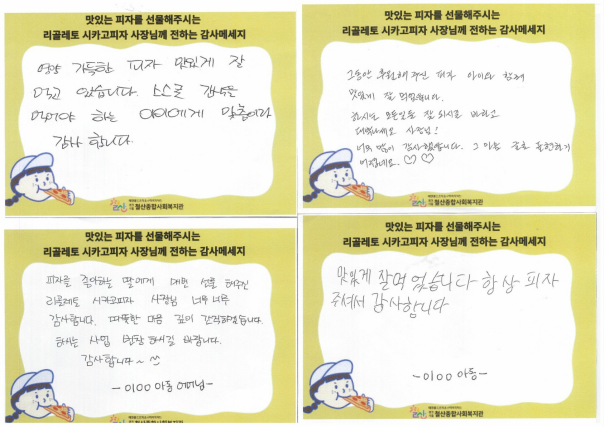 맛있는 피자를 선물해주시는
리골레토 시카고피자 사장님께 전하는 감사메세지
영양 가득한 피자 맛있게 잘
먹고 있습니다.
먹여야 하는 아이에게 맞춤이라
감사 합니다
철산종합사회복지관
맛있는 피자를 선물해주시는
리골레토 시카고피자 사장님께 전하는 감사메세지
그동안 후원해 주신 피자 아이와 함께
맛있게 잘 먹었습니다.
하시는 모든일들 잘 되시길 바라고
사장님!
너무 많이 감사했습니다. 그 마음 글로 표현하기
어렵네요. ♡♡
철산종합사회복지관
맛있는 피자를 선물해주시는
리골레토 시카고피자 사장님께 전하는 감사메세지
피자를 좋아하는 딸에게 매번 선물 해주신
리골레토 시카고피자 사장님 너무너무
감사합니다. 따뜻한 마음 깊이 간직하겠습니다
하시는 사업 번창 하시길 바랍니다.
감사합니다~ ^^
-이○○ 아동 어머님-
철산종합사회복지관
맛있는 피자를 선물해주시는
리골레토 시카고피자 사장님께 전하는 감사메세지
맛있게 잘먹 었습니다 항상 피자
주셔서 감사합니다
-이○○ 아동-
철산종합사회복지관